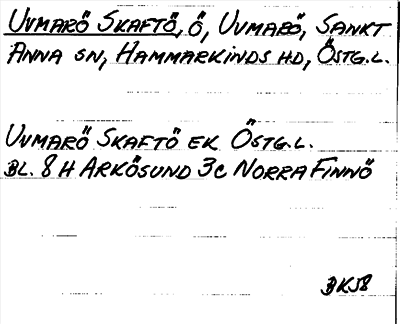 UVMARÖ SKAFTÖ, Ö, UVMARÖ, SANKT
ANNA SN, HAMMARKINDS HD, ÖSTG.L.
UVMARÖ SKAFTÖ EK ÖSTG.L.
BL. 8 H ARKÖSUND 3c NORRA FINNÖ
BKJ8